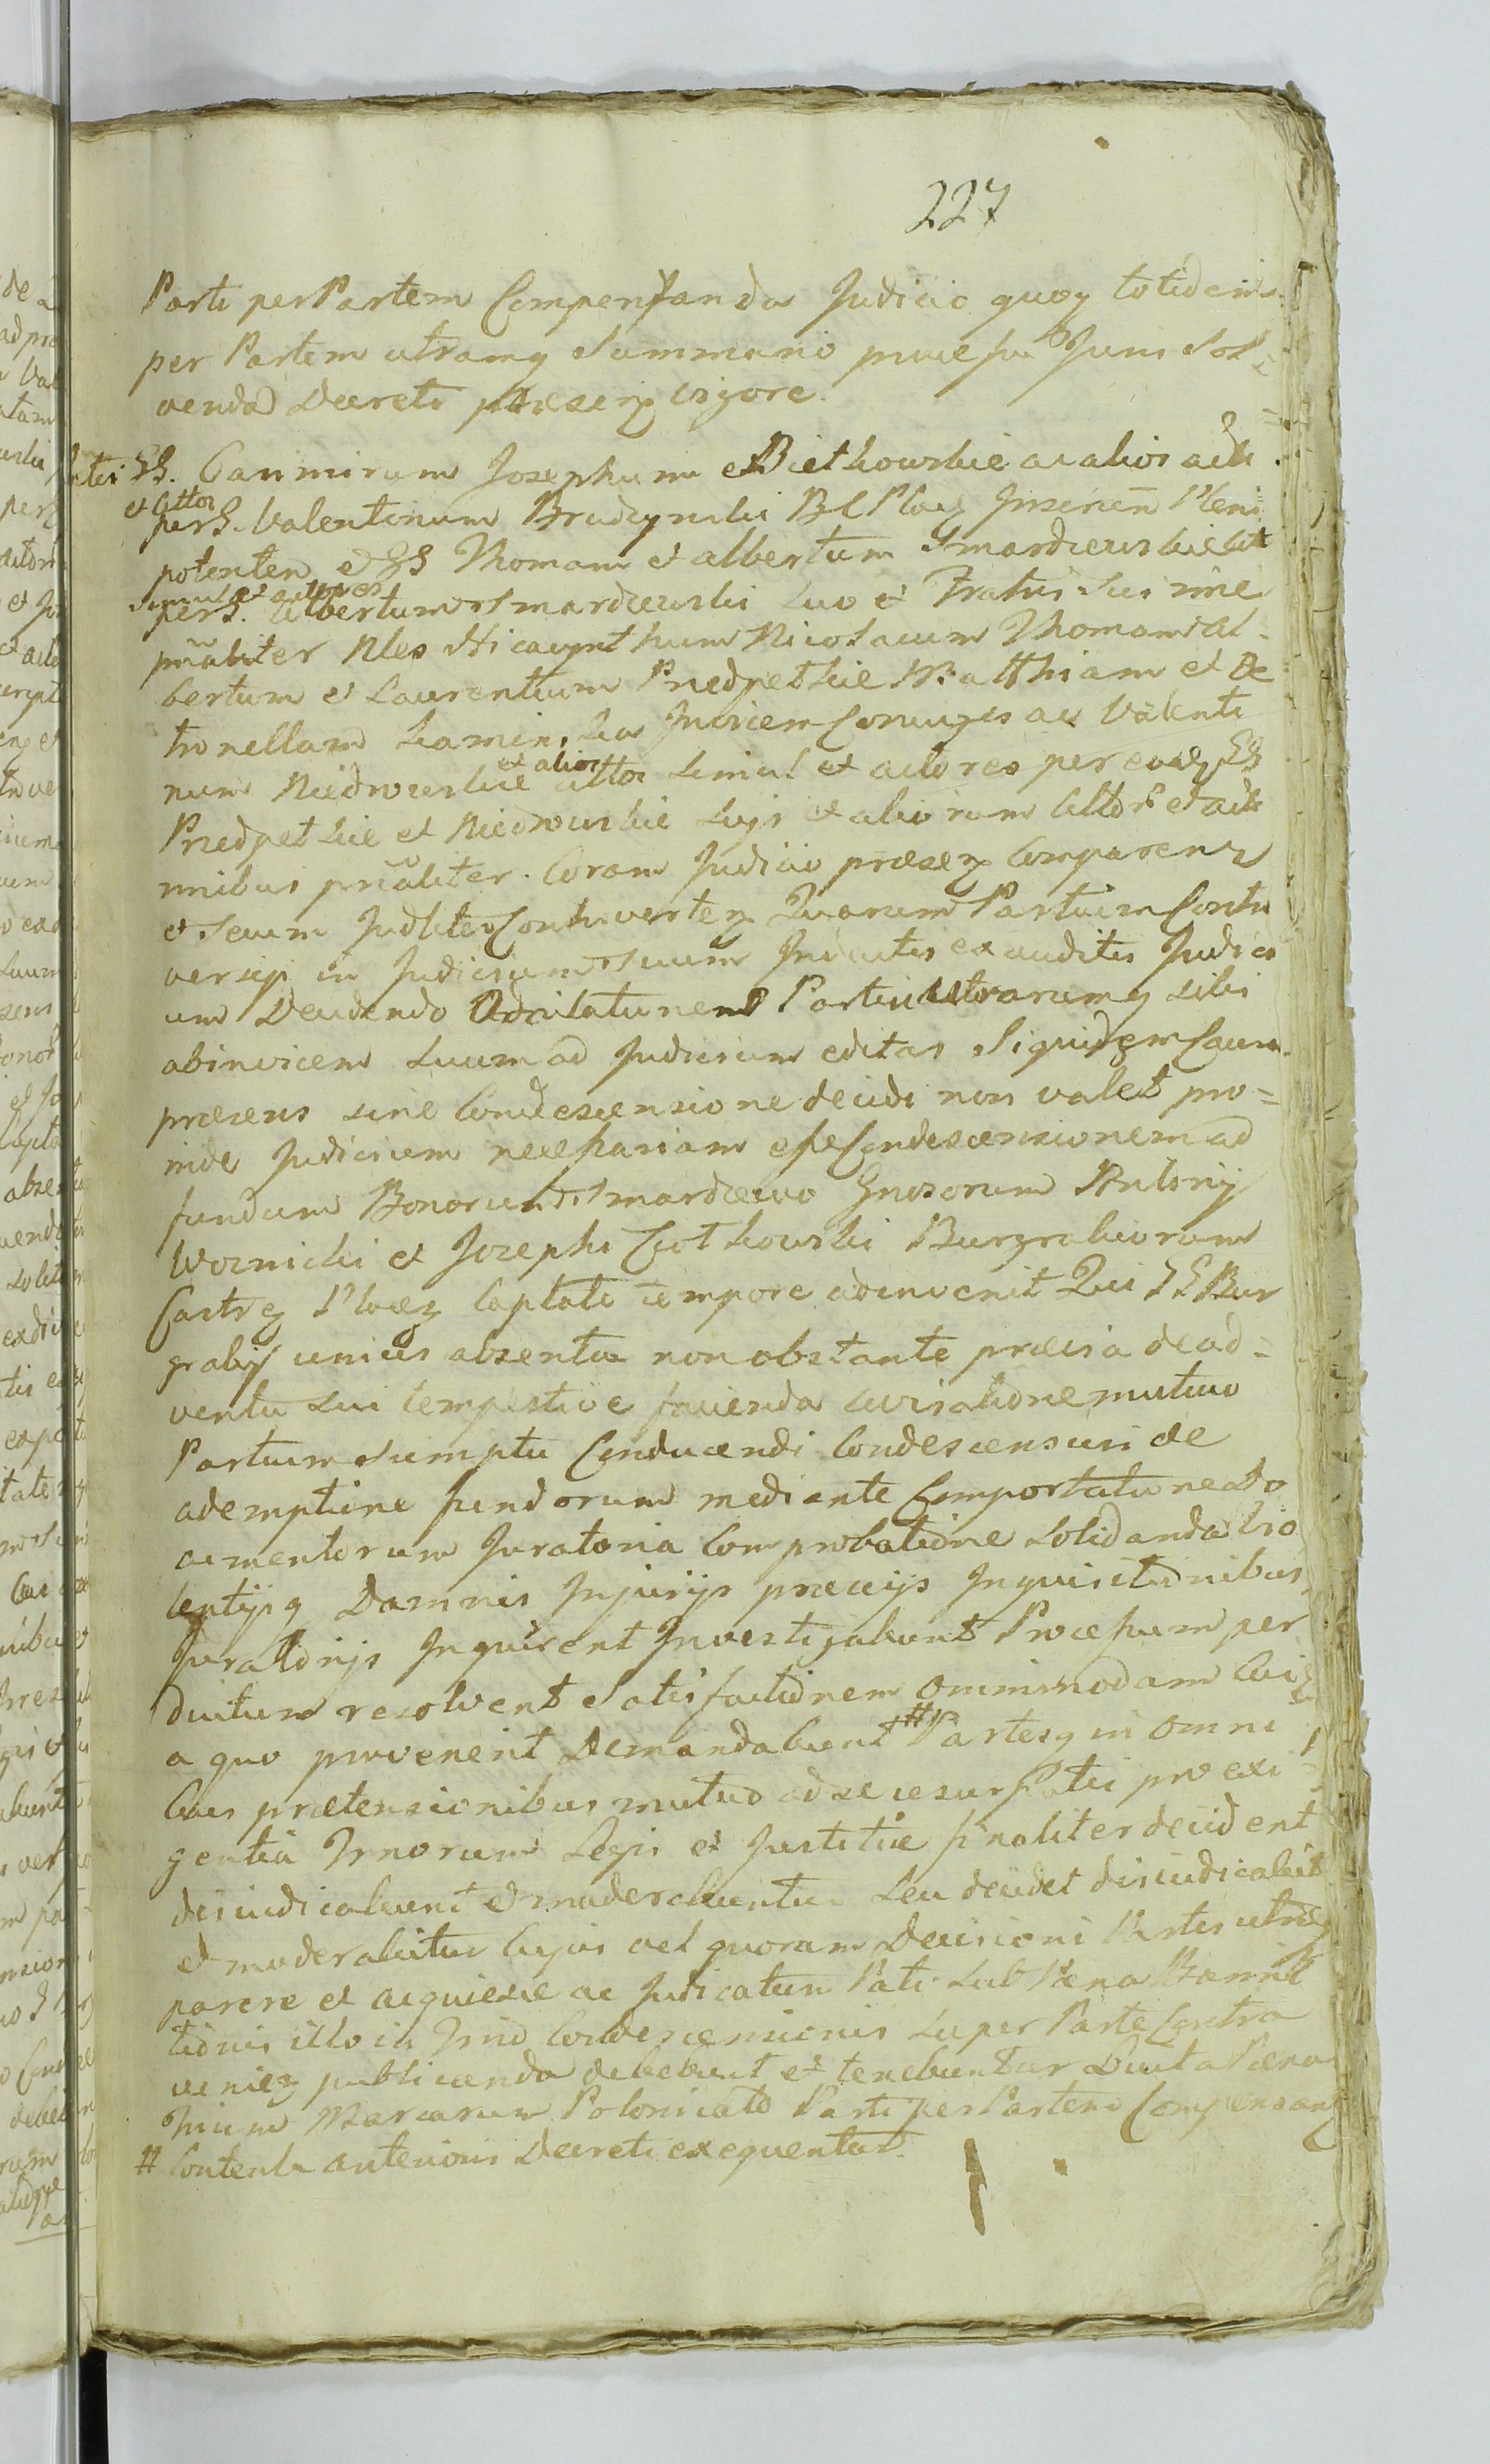 227
Parti per Partem Compensanda Judicio quoq totidem
per Partem utramq Summario praevisu Juris Sol=
venda Decreti praesenz vigore.
Inter GG. Casimirum Josephum et Biethowskie ac alios act
et Cittos
per G. Valentinum Brudzynski BC Ploc Jnserien Pleni
potenten et GG Thomam et Albertum Smardzewskie Citt
Simul et actores
per G. Albertum Smardzewski suo et Fratris sui nine
pnaliter Nles Hicacynthum Nicolaum Thomam Al=
bertum et Laurentium Przedpetkie Matthiam et Pe
tronellam Kamins kas Invicem Conjuges ac Valenti
et alios
num Niedrwskie Cittos simul et actores per eosz GG
Przedpetkie et Niedrwskie suis et aliorum Cittor et act
nnibus pnaliter. Coram Judicio praesenz Comparenz
et secum Judliter Controvertenz Quarum Partium Contro
versijs in Judicium suum Inductis exauditis Judici
um Decidendo Adcitationens Partis utrarumq sibi
abinvicem suum ad Judicium editas Siquidem Causa
praesens sine Condescensione decidi non valet pro=
inde Judicium necessariam esse Condescensionem ad
fundum Bonorum Smardzewo Gnosorum Antonij
Woznicki et Josephi Czothowski Burgrabiorum
Castrz Plocz Captato tempore adinvenit Qui GG Bur
grabij unius absentia non obstante praevia de ad=
ventu sui tempestive facienda avisatione mutuo
Partium Sumptu Conducendi Condescensuri de
ademptione fundorum mediante Comportatione Do
cumentorum Juratoria Comprobatione solidanda Vio
lentijsq Damnis Injurijs praevijs Inquisitionibus
Juratorijs Inquirent Investigabunt Processum per
ductum resolvent Satisfactionem Omnimodam Cui
a quo provenerit Demandabunt # Partesq in Omni
bus praetensionibus mutuo ad se resurssatis pro exi
gentia Trnorum Legis et Justitiae finaliter decident
dijudicabunt et moderabuntur seu decidet dijudicabit
et moderabitur Cujus vel quorum Decisioni Partes utraeq
parere et acquiescere ac Judicatum Pati sub Poena Banni
tionis illo in Trno Condescensionis super Parte Contra
venienz publicanda debebunt et tenebuntur Luita Poena
trium Marcarum Polonicato Parti per Partem Compensanz
# Contenta anterioris Decreti exequentur.